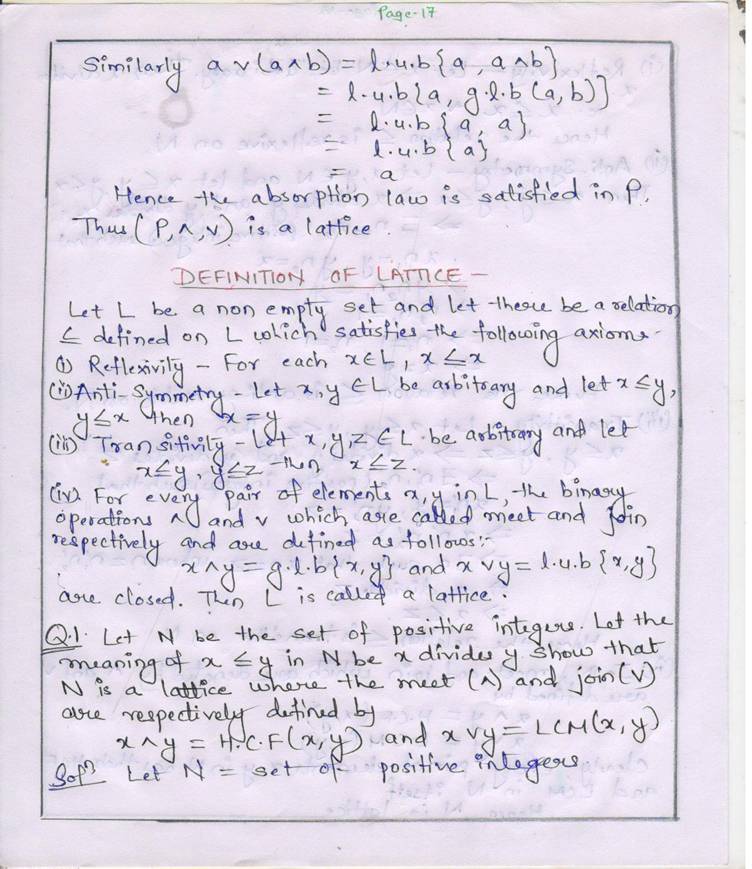 Page-17
Similarly a ∨ (a ∧ b) = l.u.b {a, a ∧ b}
= l.u.b {a, g.l.b (a, b)}
= l.u.b {a, a}
= l.u.b {a}
= a
Hence the absorption law is satisfied in P.
Thus (P, ∧, ∨) is a lattice.
DEFINITION OF LATTICE -
Let L be a non empty set and let there be a relation
≤ defined on L which satisfies the following axioms-
(i) Reflexivity - For each x ∈ L, x ≤ x
(ii) Anti-Symmetry - Let x, y ∈ L be arbitrary and let x ≤ y,
y ≤ x then x = y
(iii) Transitivity - Let x, y, z ∈ L be arbitrary and let
x ≤ y, y ≤ z then x ≤ z.
(iv) For every pair of elements x, y in L, the binary
operations ∧ and ∨ which are called meet and join
respectively and are defined as follows:-
x ∧ y = g.l.b {x, y} and x ∨ y = l.u.b {x, y}
are closed. Then L is called a lattice.
Q.1. Let N be the set of positive integers. Let the
meaning of x ≤ y in N be x divides y show that
N is a lattice where the meet (∧) and join (∨)
are respectively defined by
x ∧ y = H.C.F (x, y) and x ∨ y = LCM (x, y)
Solⁿ Let N = set of positive integers